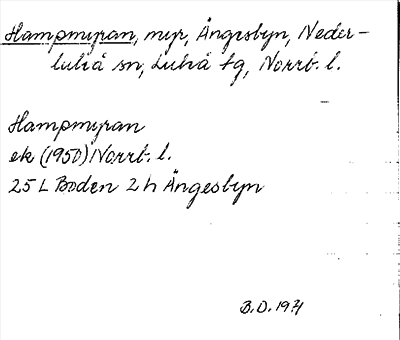 Hampmyran, myr, Ängesbyn, Neder-
luleå sn, Luleå tg, Norrb. l.
Hampmyran
ek (1950) Norrb. l.
25 L Boden 2 h Ängesbyn
B.D. 1971